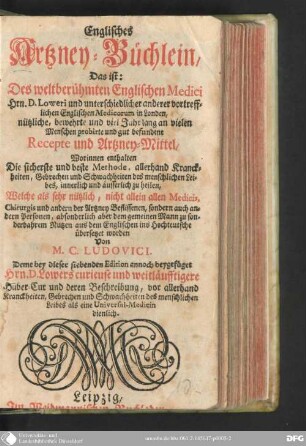 Englisches
Artzney-Büchlein/
Das ist:
Des weltberühmten Englischen Medici
Hrn. D. Loweri und unterschiedlicher anderer vortreff-
lichen Englischen Medicorum in Londen,
nützliche, bewehrte und viel Jahr lang an vielen
Menschen probirte und gut befundene
Recepte und Artzney-Mittel/
Worinnen enthalten
Die sicherste und beste Methode, allerhand Kranck-
heiten, Gebrechen und Schwachheiten des menschlichen Lei-
bes, innerlich und äusserlich zu heilen,
Welche als sehr nützlich, nicht allein allen Medicis,
Chirurgis und andern der Artzney Beflissenen, sondern auch an-
dern Personen, absonderlich aber dem gemeinen Mann zu son-
derbahren Nutzen aus dem Englischen ins Hochteutsche
übersetzet worden
Von
M. C. LUDOVICI.
Deme bey dieser siebenden Edition annoch beygefüget
Hrn. D. Lowers curieuse und weitläufftigere
Haber-Cur und deren Beschreibung, vor allerhand
Kranckheiten, Gebrechen und Schwachheiten des menschlichen
Leibes als eine Universal-Medicin
dienlich.
Leipzig,